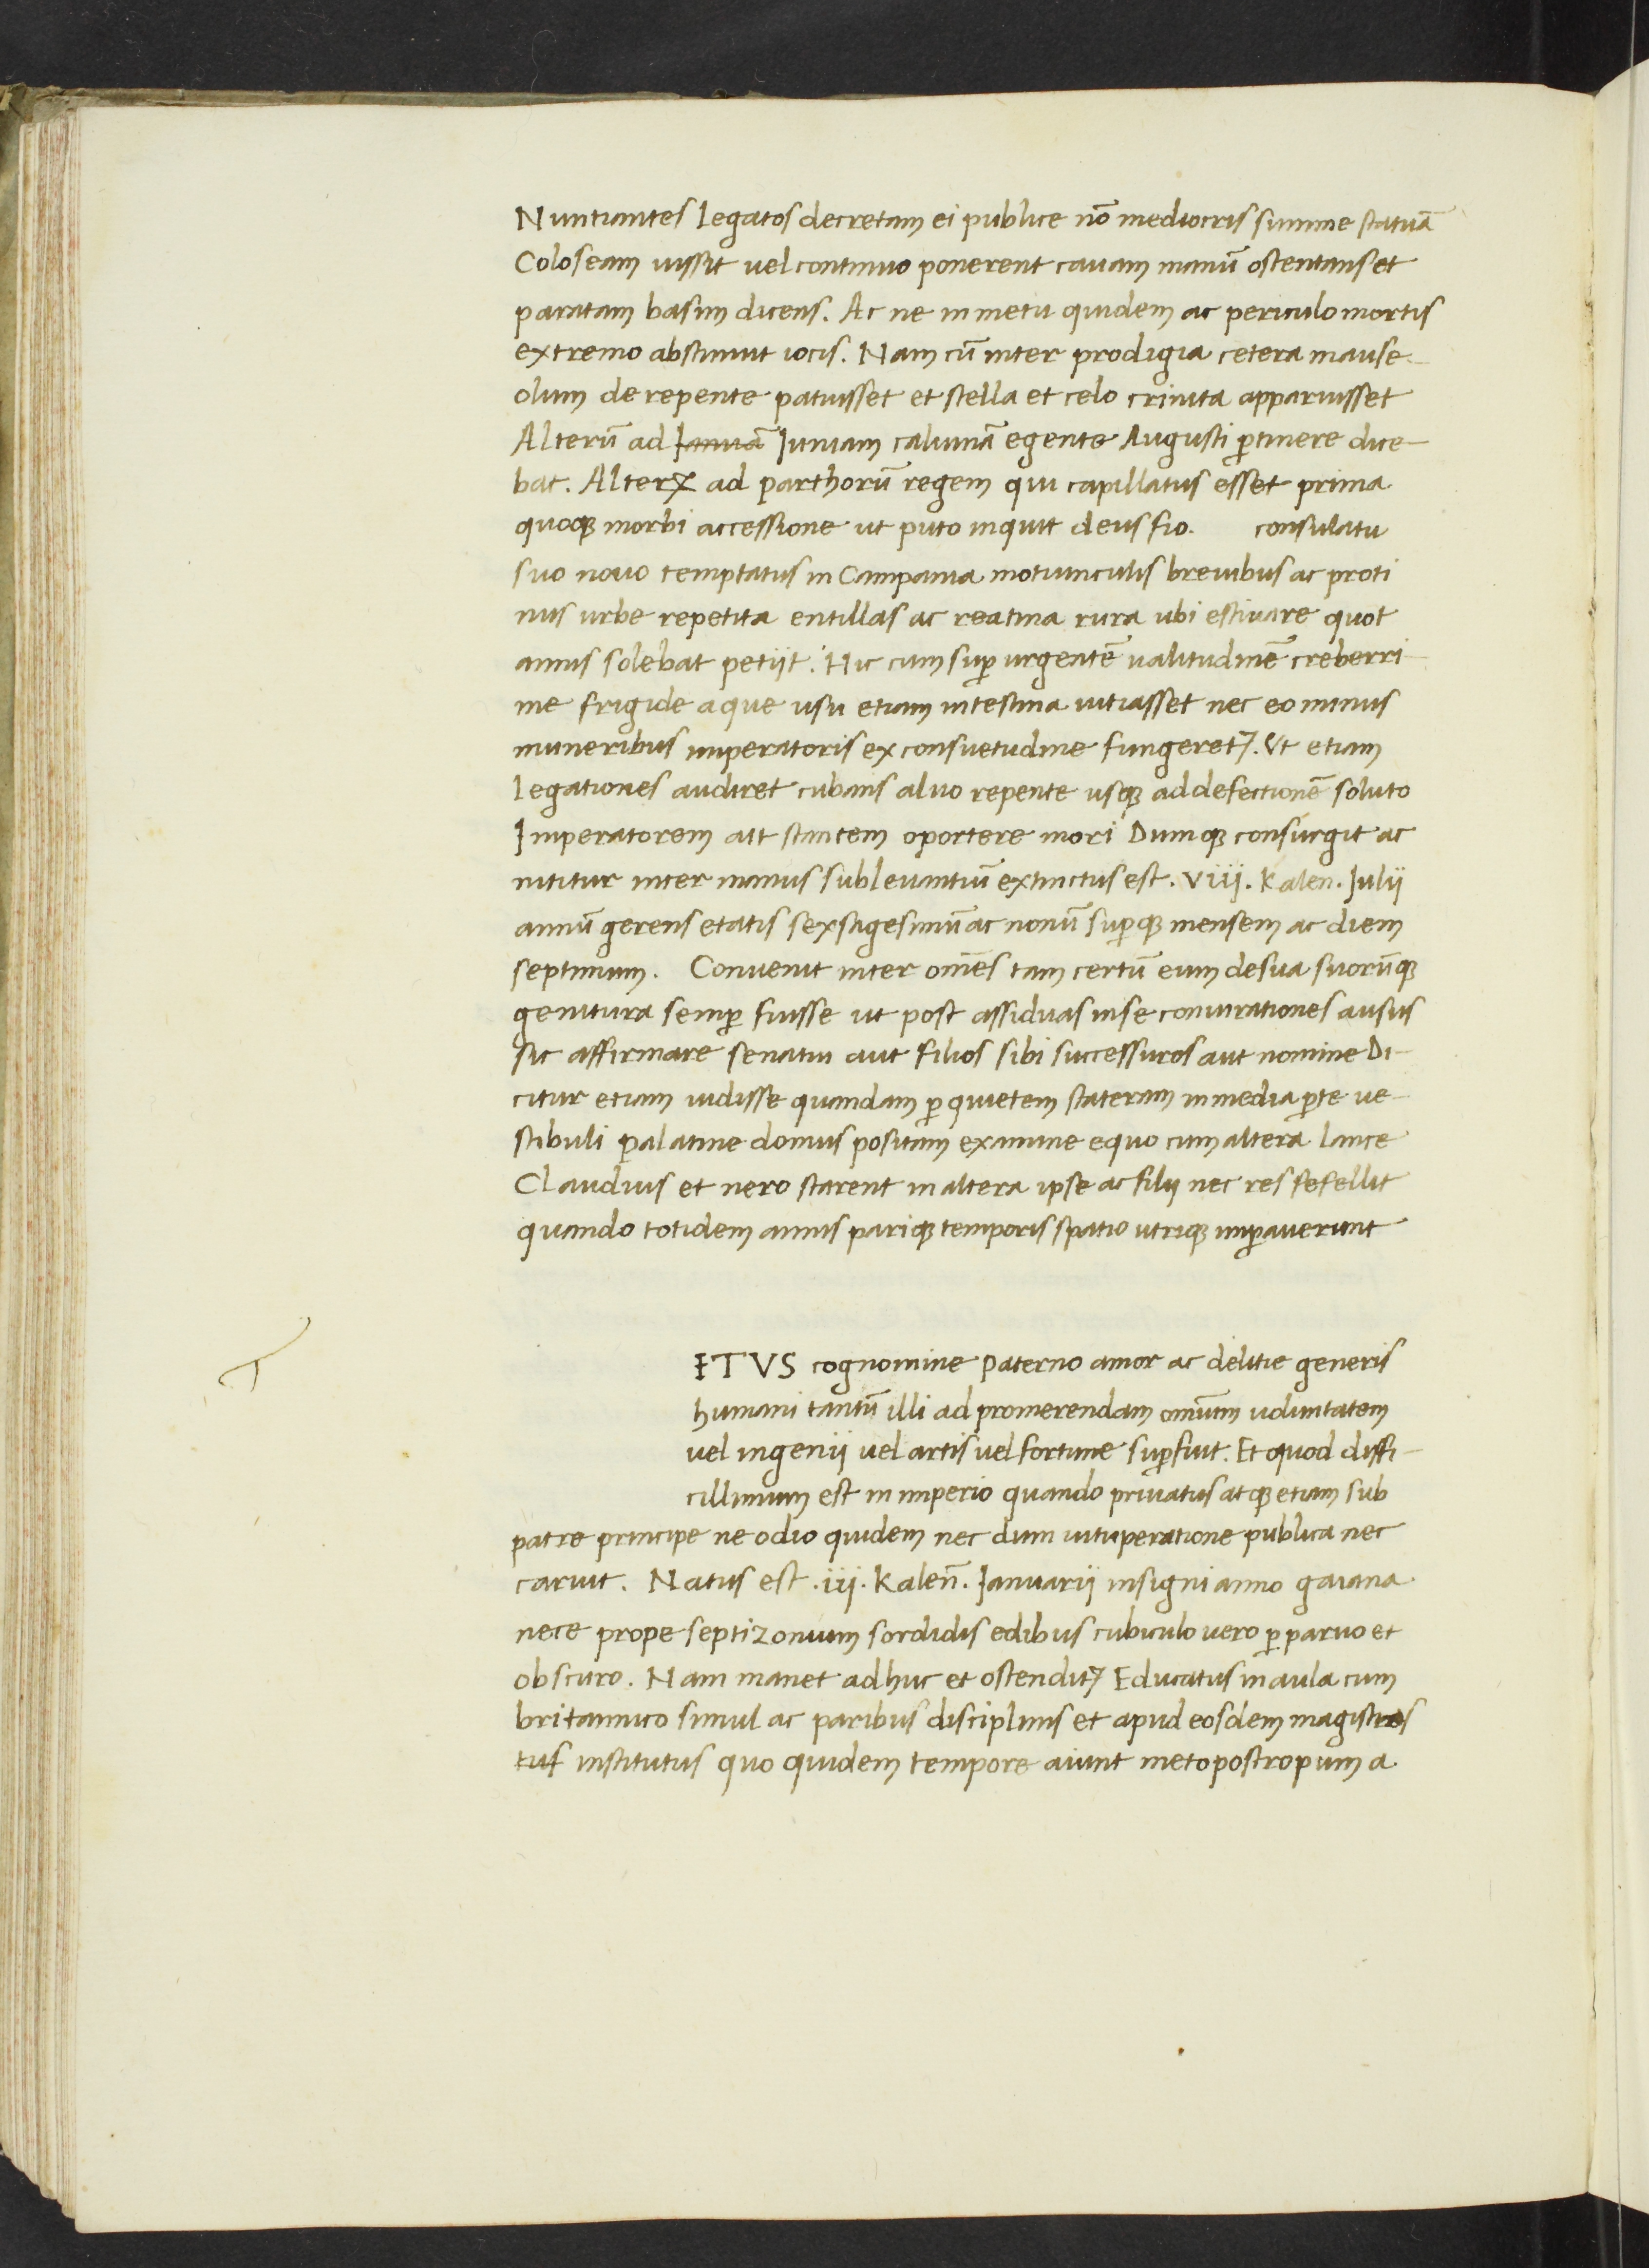 Nuntiantes legatos decretam ei publice nō mediocris summe statuā
Coloseam iussit uel continuo ponerent cauam manū ostentans et
paratam basim dicens. Ac ne in metu quidem ac periculo mortis
extremo abstinuit iocis. Nam cū inter prodigia cetera mause-
olum de repente patuisset et stella et celo crinita apparuisset
Alterū ad Ianuā Iuniam caluinā e gente Augusti p̄tinere dice-
bat. Alterꝝ ad parthorū regem qui capillatus esset prima
quoqꝫ morbi accessione ut puto inquit deus fio. consulatu
suo nouo temptatus in Campania motiunculis breuibus ac proti
nus urbe repetita entillas ac reatina rura ubi estiuare quot
annis solebat petijt. Hic cum sup̄ urgentē ualitudinē creberri-
me frigide aque usu etiam intestina uitiasset nec eo minus
muneribus imperatoris ex consuetudine fungeretꝰ. Vt etiam
legationes audiret cubans aluo repente usqꝫ ad defectionē soluto
Imperatorem ait stantem oportere mori Dumqꝫ consurgit ac
nititur inter manus subleuantiū extinctus est. viij. kalen. Julij
annū gerens etatis sexsagesimū ac nonū sup̄qꝫ mensem ac diem
septimum. Conuenit inter om̄es tam certū eum de sua suorūqꝫ
genitura semp̄ fuisse ut post assiduas in se coniurationes ausus
sit affirmare senatui aut filios sibi successuros aut nomine Di-
citur etiam uidisse quandam ꝑ quietem stateram in media ꝑte ue-
stibuli palatine domus positam examine equo cum altera lance
Claudius et nero starent in altera ipse ac filij nec res fefellit
quando totidem annis pariqꝫ temporis spatio utriqꝫ imꝑauerunt
ITVS cognomine paterno amor ac delitie generis
humani tantū illi ad promerendam omniūm uoluntatem
uel ingenij uel artis uel fortune sup̄fuit. Et quod diffi-
cillimum est in imperio quando priuatus atqꝫ etiam sub
patre principe ne odio quidem nec dum uituperatione publica nec
caruit. Natus est .iij. kaleñ. Januarij insigni anno gaiana
nece prope septizonium sordidis edibus cubiculo uero ꝑ paruo et
obscuro. Nam manet adhuc et ostenditꝰ Educatus in aula cum
britannico simul ac paribus disciplinis et apud eosdem magistros
tus institutus quo quidem tempore aiunt metopostropum a
T